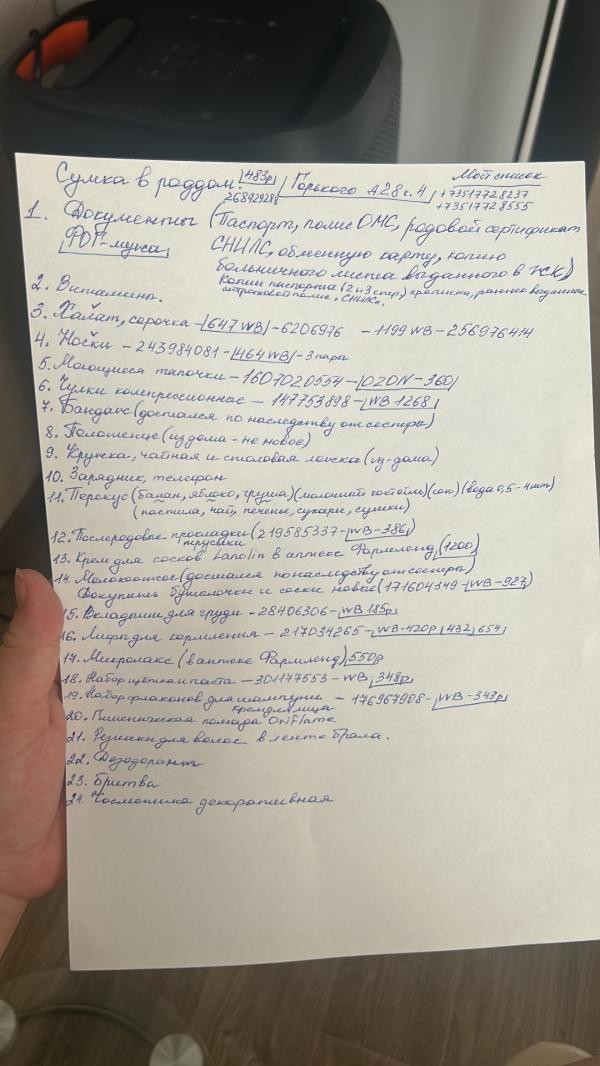 Сумка в роддом. 483р Горького д.28 к.4 Мой список
268929286 +73517728237
+73517728555
1. Документы (Паспорт, полис ОМС, родовой сертификат
СНИЛС, обменную карту, копию
больничного листа выданного в ЖК)
Копии паспорта (2 и 3 стр) прописка, раннее выданные
страховой полис, СНИЛС.
2. Витамины.
3. Халат, сорочка - 647 WB - 6206976 - 1199 WB - 256976414
4. Носки - 243984081 - 464 WB - 3 пары
5. Моющиеся тапочки - 1607020554 - OZON - 360
6. Чулки компрессионные - 147753898 - WB 1268
7. Бандаж (достался по наследству от сестры)
8. Полотенце (из дома - не новое)
9. Кружка, чайная и столовая ложка (из дома)
10. Зарядник, телефон
11. Перекус (банан, яблоко, груша) (сок) (вода 0,5 - 4 шт)
(пастила, чай, печенье, сухари, сушки)
12. Послеродовые прокладки (219585337 - WB - 386)
трусики
13. Крем для сосков Lanolin в аптеке Фармленд (1200)
14. Молокоотсос (достался по наследству от сестры)
Докупить бутылочки и соски новые (171604349 - WB - 927)
15. Вкладыши для груди - 28406306 - WB 185р
16. Лифы для кормления - 217034265 - WB - 420р 432 654
17. Микролакс (в аптеке Фармленд) 550р
18. Набор щётка и паста - 301177553 - WB 348р
19. Набор флаконов для шампуни - 176967908 - WB - 343р
крем для лица
20. Гигиеническая помада Oriflame
21. Резинки для волос в ленте брала.
22. Дезодорант
23. Бритва
24. Косметика декоративная